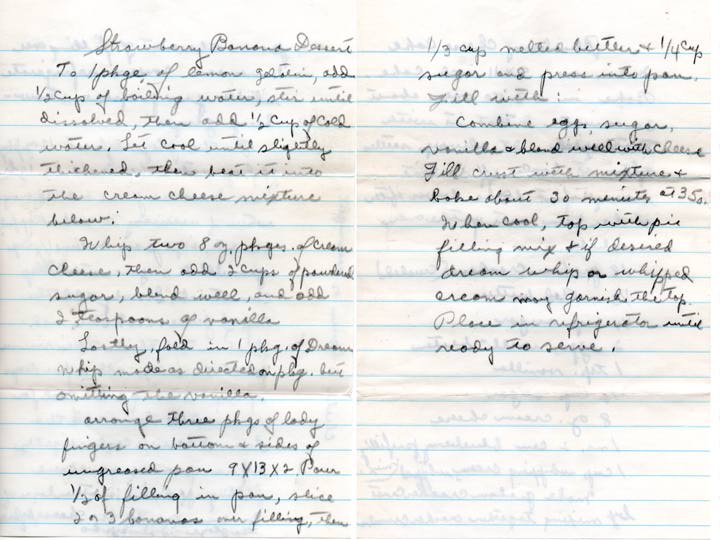 Strawberry Banana Dessert
To 1 phge of lemon gelatin, add
1/2 cup of boiling water, stir until
dissolved, then add 1/2 cup of cold
water. Let cool until slightly
thickened, then beat it into
the cream cheese mixture
below:
Whip two 8 oz, phges. of cream
cheese, then add 2 cups of powdered
sugar, blend well, and add
2 teaspoons of vanilla
Lastly, fold in 1 phg. of Dream
whip made as directed on phg. but
omitting the vanilla.
arrange three phgs of lady
fingers on bottom & sides of
ungreased pan 9X13X2 Pour
1/2 of filling in pan, slice
2 or 3 bananas over filling, then
1/3 cup melted butter & 1/4 cup
sugar and press into pan.
Fill with:
Combine eggs, sugar,
vanilla & blend well with cheese
Fill crust with mixture &
bake about 30 minutes at 350.
When cool, top with pie
filling mix & if desired
dream whip or whipped
cream may garnish the top.
Place in refrigerator until
ready to serve.
1 tsp. vanilla
8 oz. cream cheese